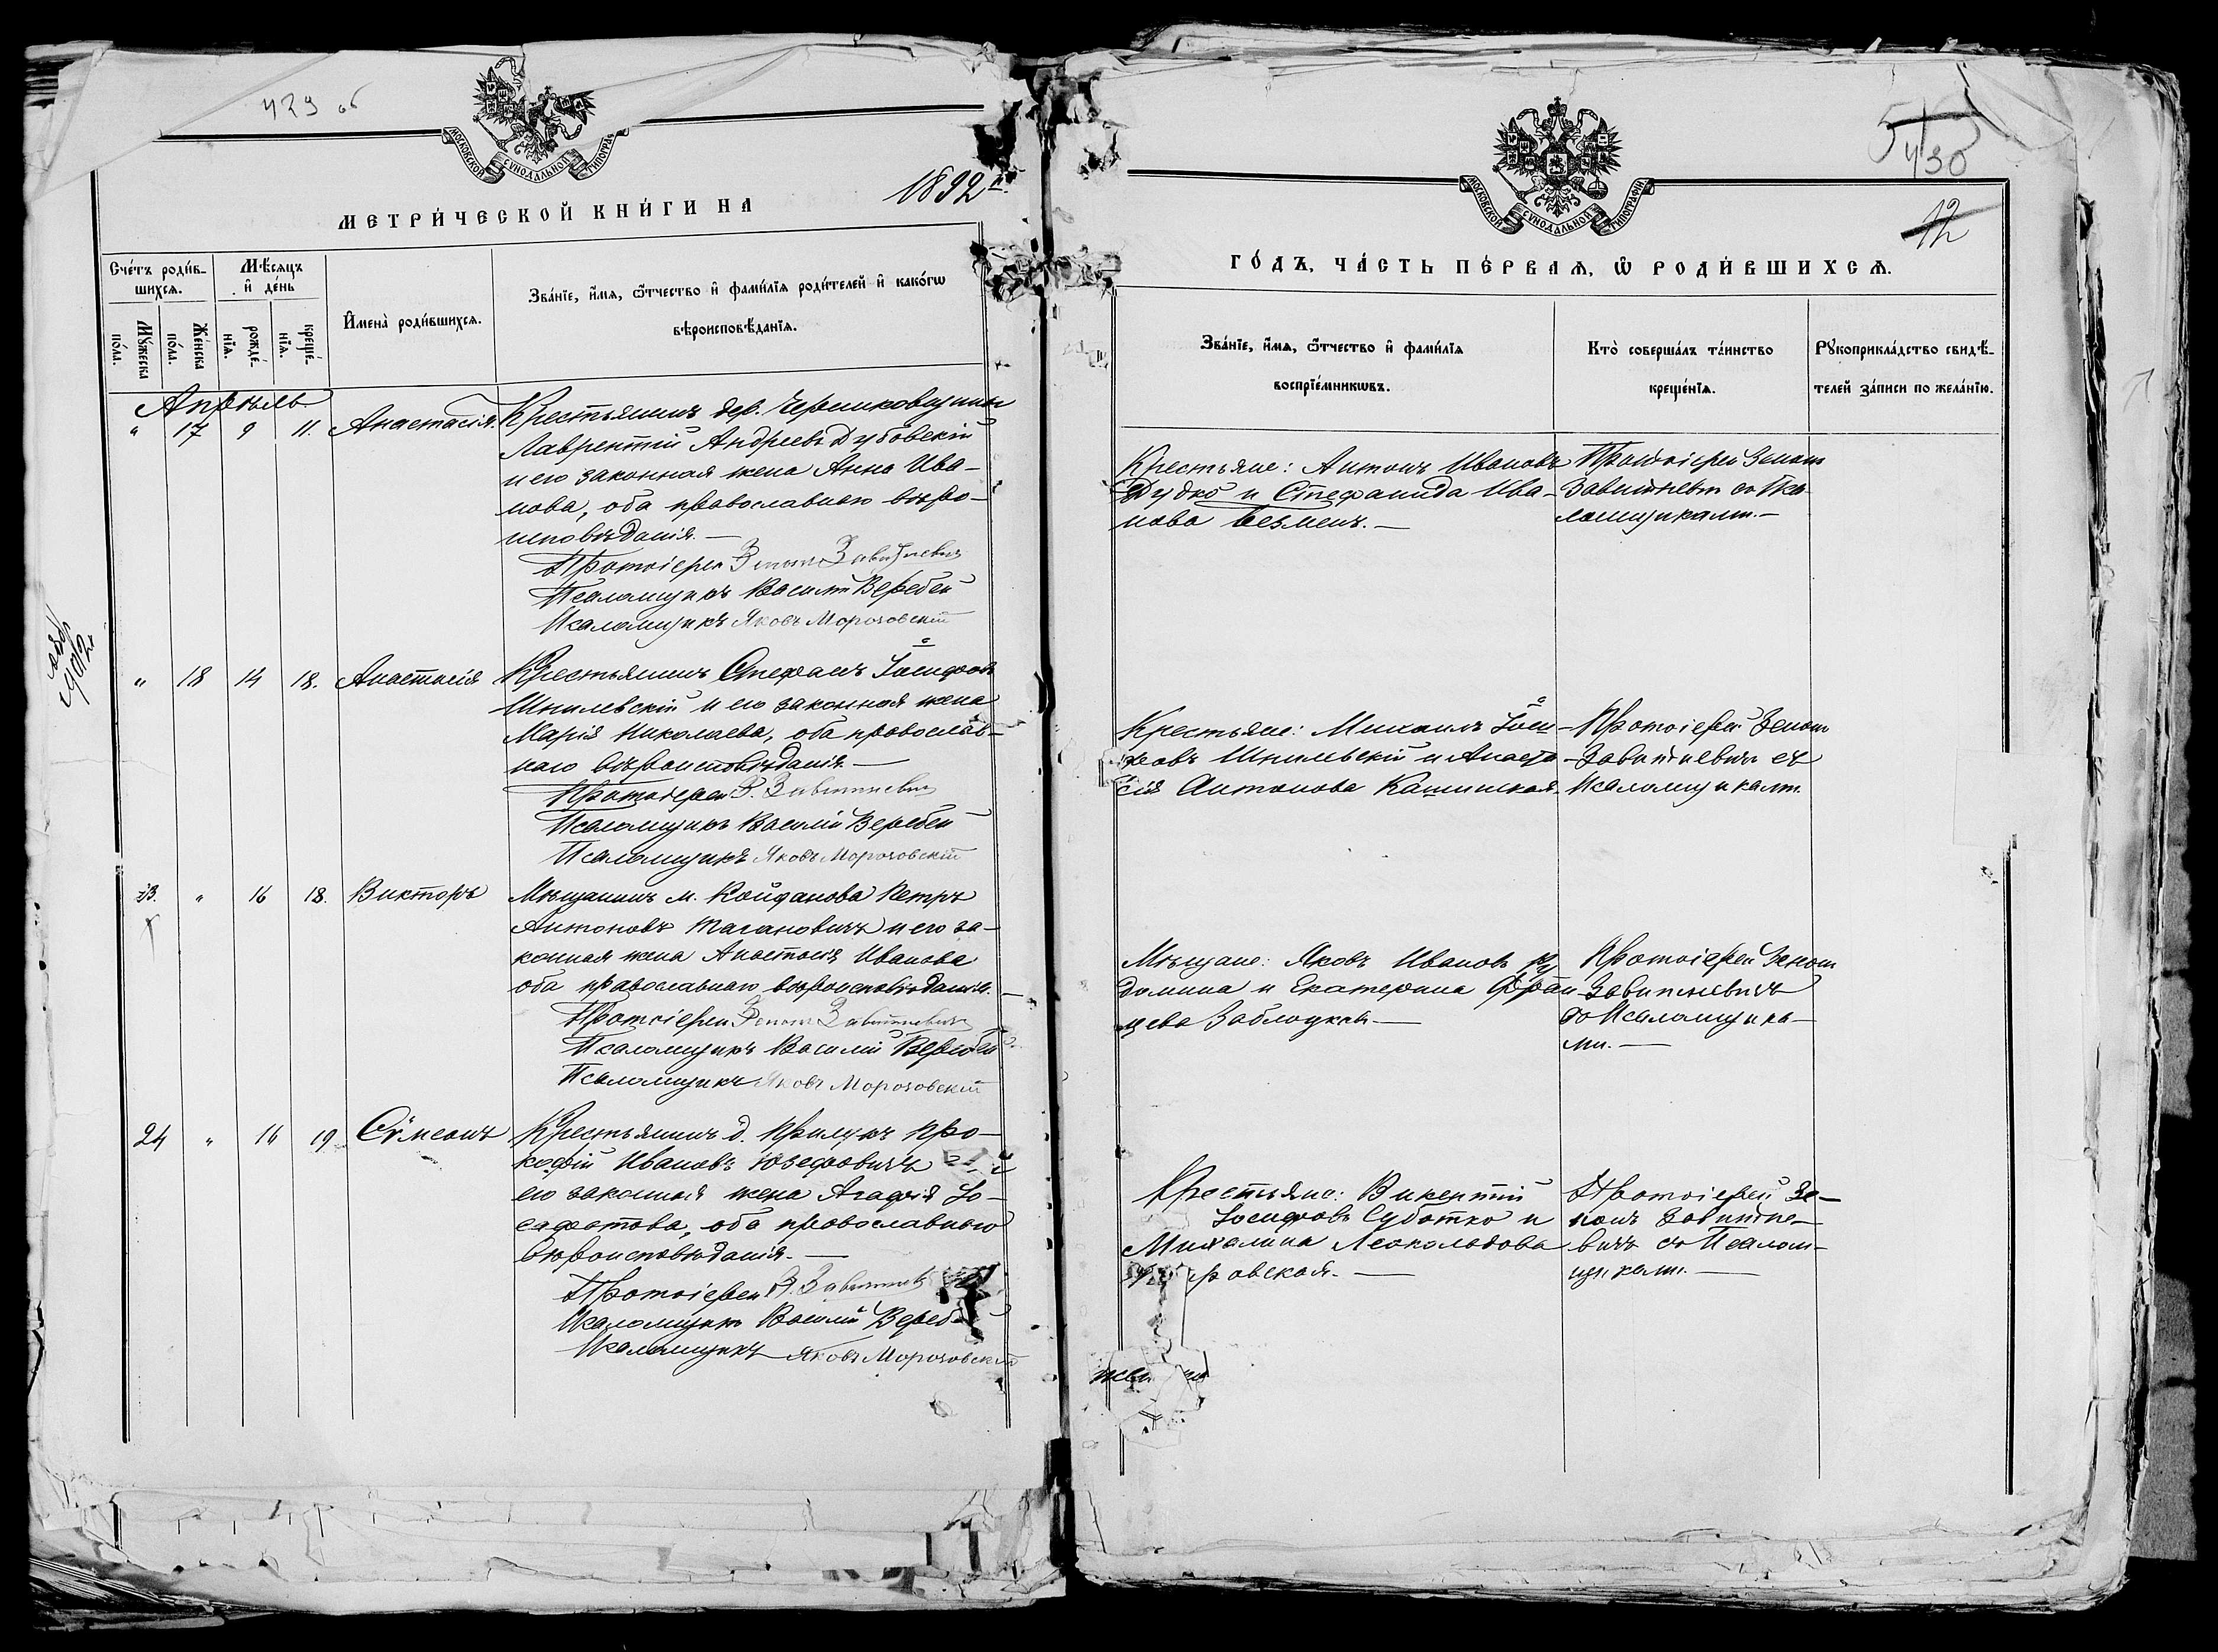 429 об
МОСКОВСКОЙ СУНОДАЛЬНОЙ ТИПОГРАФІИ
1892 г.
МЕТРИ́ЧЕСКОЙ КНИ́ГИ НА
Сче́тъ роди́в-
шихся.
Мѣсяцъ
и҆ де́нь
И҆мена̀ роди́вшихся.
Зва́нїе, и҆́мя, ѻ҆́тчество и҆ фами́лїя роди́телей и҆ како́гѡ
вѣроисповѣ́данїя.
Мꙋ́жеска
по́ла.
Же́нска
по́ла.
рожде́-
нїя.
креще́-
нїя.
Апрѣль.
" 17 9 11. Анастасія. Крестьянинъ дер. Черниковщины
Лаврентій Андреевъ Дубовскій
и его законная жена Анна Ива-
нова, оба православнаго вѣро-
исповѣданія. —
Протоіерей Зенонъ Завитневичъ
Псаломщикъ Василій Веребей
Псаломщикъ Яковъ Морозовскій
" 18 14 18. Анастасія Крестьянинъ Стефанъ Іосифовъ
Шпилевскій и его законная жена
Марія Николаева, оба православ-
наго вѣроисповѣданія. —
Протоіерей З. Завитневичъ
Псаломщикъ Василій Веребей
Псаломщикъ Яковъ Морозовскій
23. " 16 18. Викторъ Мѣщанинъ м. Койданова Петръ
Антоновъ Тагановичъ и его за-
конная жена Анастасія Иванова
оба православнаго вѣроисповѣданія. —
Протоіерей Зенонъ Завитневичъ
Псаломщикъ Василій Веребей
Псаломщикъ Яковъ Морозовскій
24 " 16 19 Сѵмеонъ Крестьянинъ д. Прилукъ Про-
кофій Ивановъ Юзефовичъ и
его законная жена Агафія Іо-
сафатова, оба православнаго
вѣроисповѣданія. —
Протоіерей З. Завитнев
Псаломщикъ Василій Вереб
Псаломщикъ Яковъ Морозовскій
430
12
МОСКОВСКОЙ СУНОДАЛЬНОЙ ТИПОГРАФІИ
ГО́ДЪ, ЧА́СТЬ ПЕ́РВАЯ, Ѡ҆ РОДИ́ВШИХСЯ.
Зва́нїе, и҆́мя, ѻ҆́тчество и҆ фами́лїя
воспрїе́мникѡвъ.
Кто̀ соверша́лъ та́инство
креще́нїя.
Рꙋкоприкла́дство свидѣ́-
телей за́писи по жела́нїю.
Крестьяне: Антонъ Ивановъ
Дудко и Стефанида Ива-
нова Безменъ. —
Протоіерей Зенонъ
Завитневичъ со Пса-
ломщиками. —
Крестьяне: Михаилъ Іоси-
фовъ Шпилевскій и Анаста-
сія Антонова Кашинская.
Протоіерей Зенонъ
Завитневичъ съ
Псаломщиками.
Мѣщане: Яковъ Ивановъ Ку
домина и Екатерина Фран-
цева Заблоцкая. —
Протоіерей Зенонъ
Завитневичъ
со Псаломщика-
ми. —
Крестьяне: Викентій
Іосифовъ Суботко и
Михалина Леокольдова
ровская. —
Протоіерей Зе-
нонъ Завитне-
вичъ со Псалом-
щиками. —